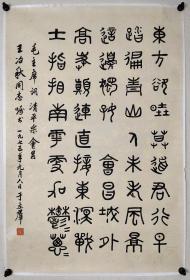 東方欲曉莫道君行早
踏遍青山人未老風景
這邊獨好會昌城外
高峰顛連直接東溟戰
士指看南粵更加鬱〻蔥〻
毛主席詞 清平樂 會昌
王冶秋同志嘱书 一九七五年九月八日 于立群